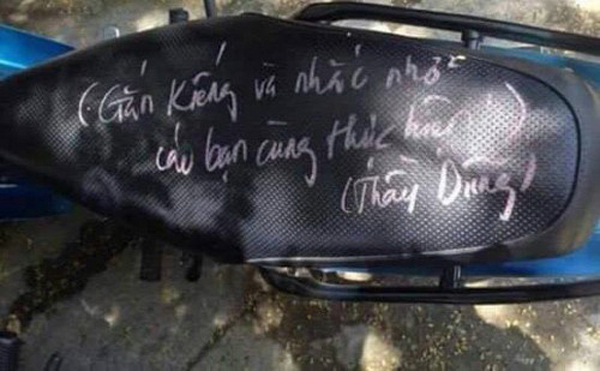 (Gắn kiếng và nhắc nhở
các bạn cùng thực hiện!)
(Thầy Dũng)